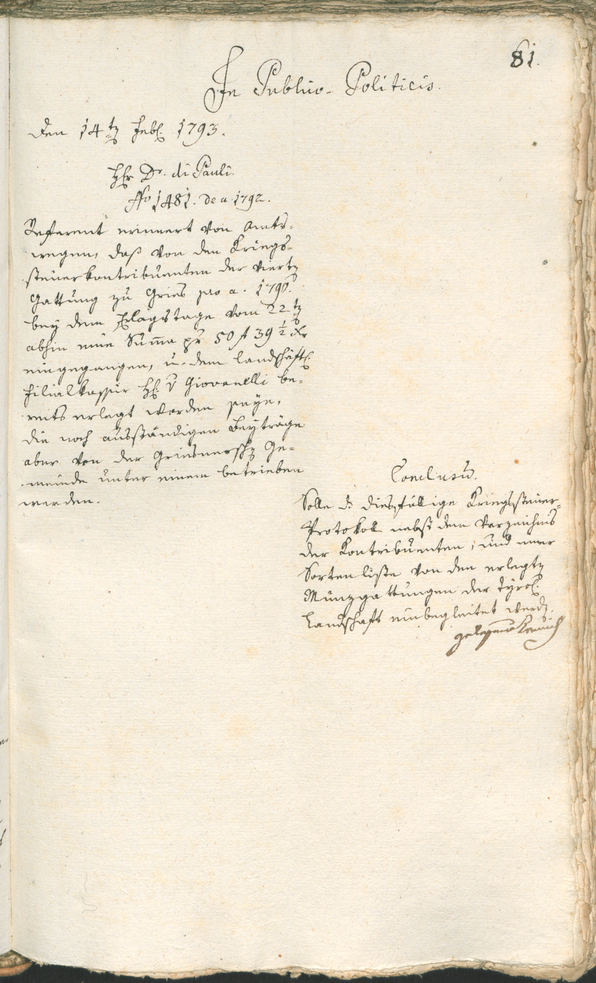 81.
In Publico-Politicis.
den 14tn Febr. 1793.
Hr Dr. di Pauli.
No 1481. de a 1792.
Referent erinnert von Amts-
wegen, daß von den Kriegs-
steuerkontribuenten der viertn
Gattung zu Gries pro a. 1790.
bey dem Erlagstage vom 22tn
abhin eine Summa pr 50 f 39 ½ xr
eingegangen, u. dem landschäftl.
Filialkassier Hl. v Giovanelli be-
reits erlegt worden seye,
die noch ausständigen Beyträge
aber von der Gemeinde
unter einem betrieben
werden.
Conclusum.
Solle das diesfällige Kriegssteuer-
Protokoll nebst dem Verzeichnis
der Kontribuenten, und einer
Sortenliste von den erlegtn
Münzgattungen der tyrol.
Landschaft einbegleitet werdn.